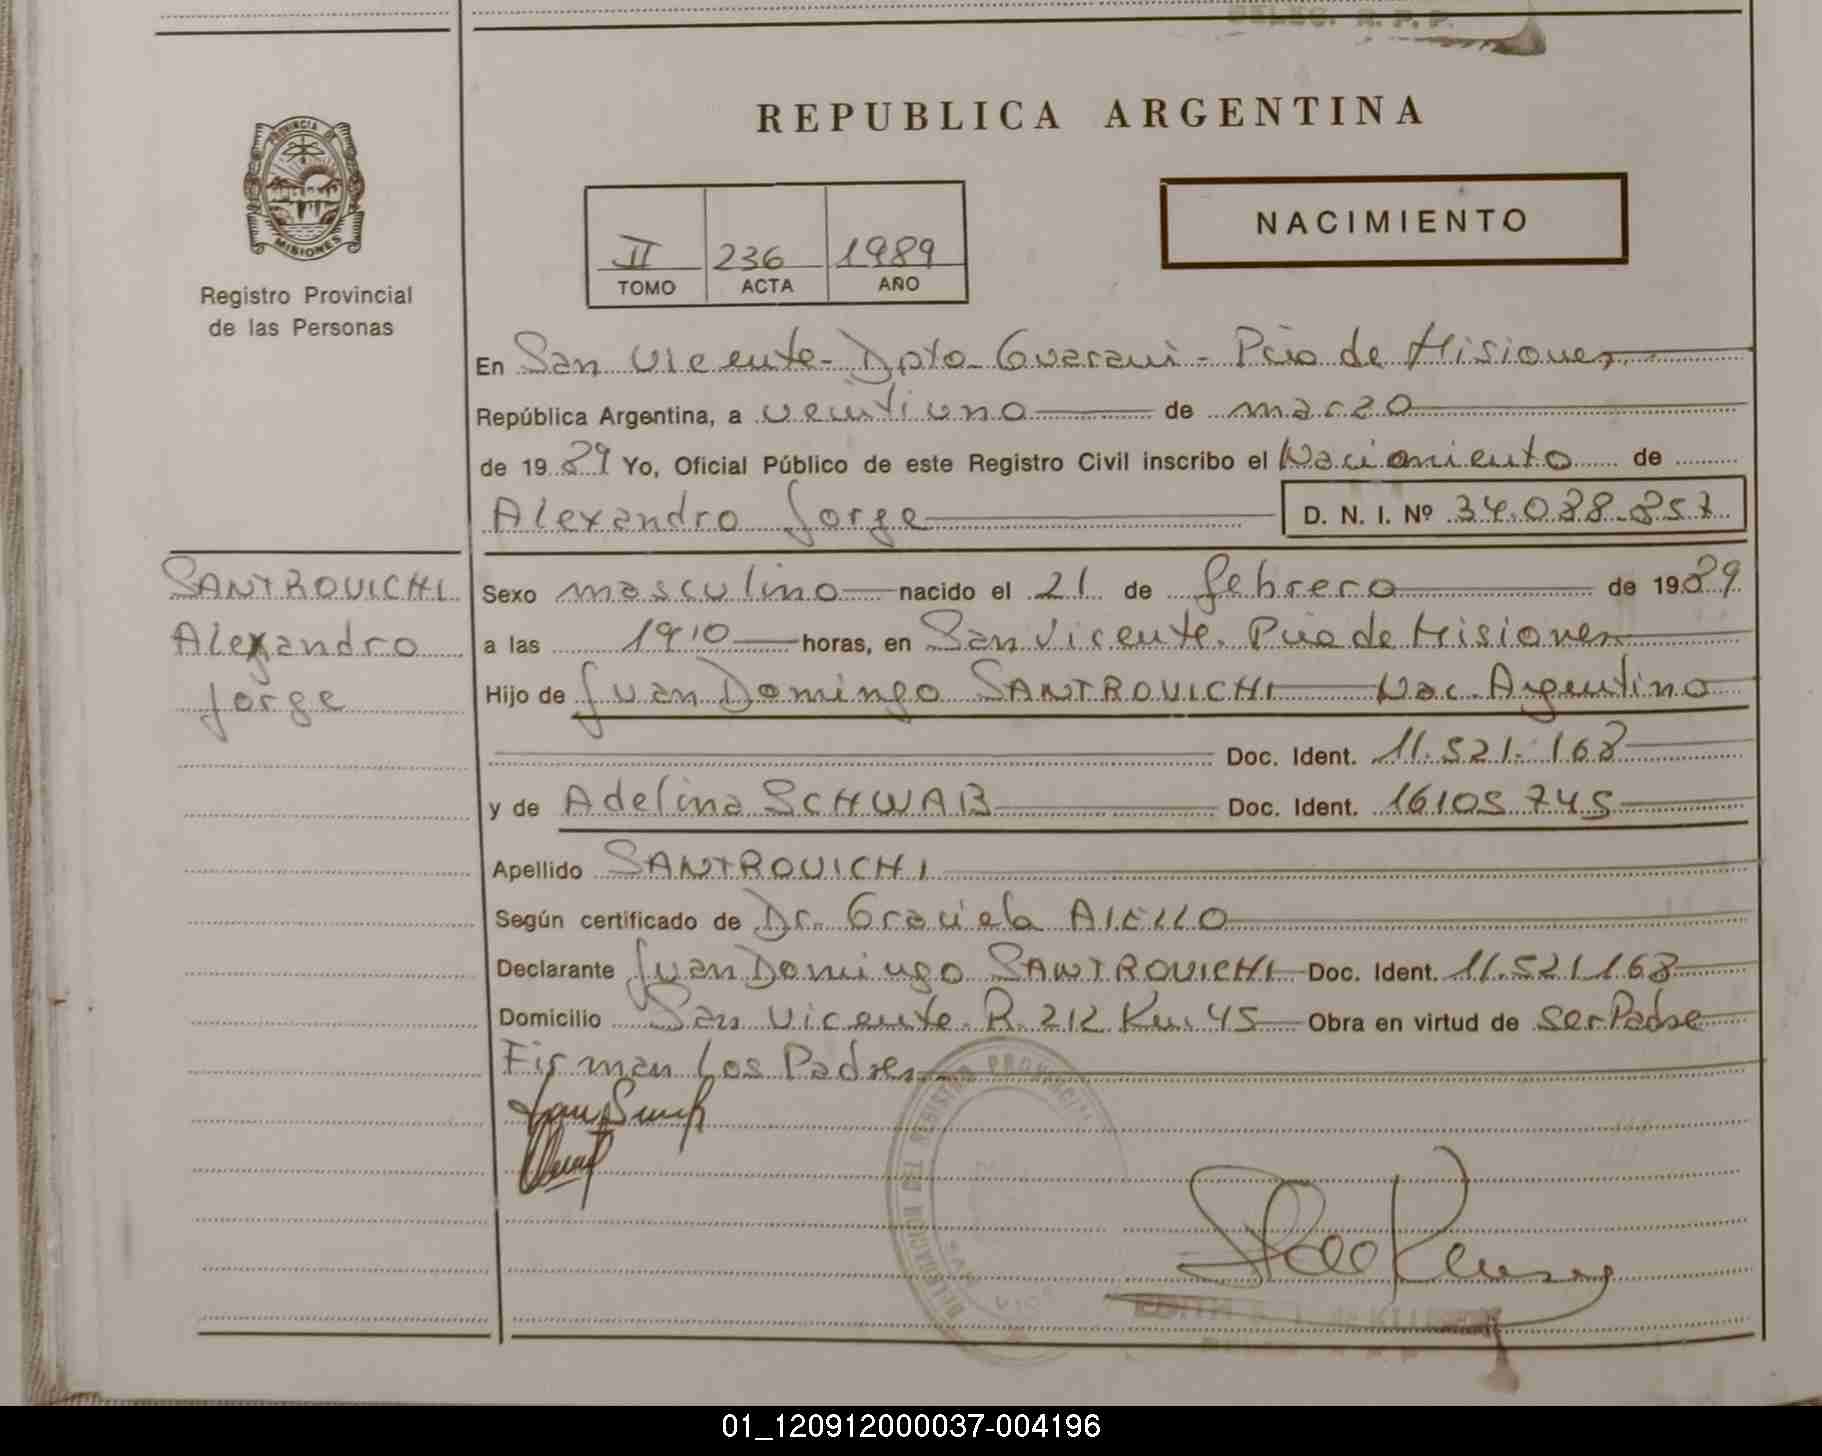 REPUBLICA ARGENTINA
PROVINCIA DE
MISIONES
Registro Provincial
de las Personas
II 236 1989
TOMO ACTA AÑO
NACIMIENTO
En San Vicente - Dpto. Guarani - Pcia de Misiones
República Argentina, a veintiuno de marzo
de 1989 Yo, Oficial Público de este Registro Civil inscribo el Nacimiento de
Alexandro Jorge D. N. I. Nº 34.088.857
SANTROVICHI
Alexandro
Jorge
Sexo masculino nacido el 21 de febrero de 1989
a las 1910 horas, en San Vicente. Pcia de Misiones
Hijo de Juan Domingo SANTROVICHI Nac. Argentino
Doc. Ident. 11.521.168
y de Adelina SCHWAB Doc. Ident. 16105745
Apellido SANTROVICHI
Según certificado de Dr. Graciela AIELLO
Declarante Juan Domingo SANTROVICHI Doc. Ident. 11.521.168
Domicilio San Vicente. R. 212 Km 45 Obra en virtud de ser Padre
Firman Los Padres
01_120912000037-004196